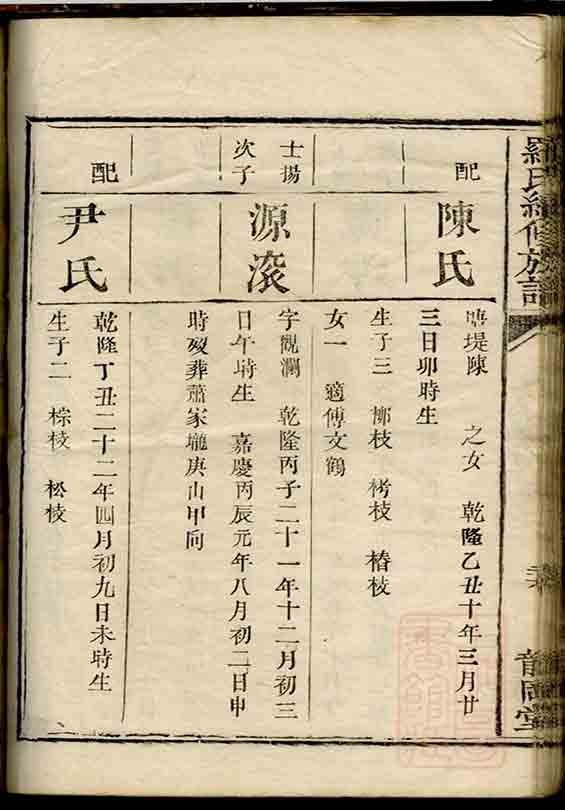 羅氏續修族譜
龍岡堂
配
陳氏
塘堤陳 之女 乾隆乙丑十年三月廿
三日卯時生
生子三 廓枝 樗枝 椿枝
女一 適傅文鶴
士揚
次子
源滾
字觀瀾 乾隆丙子二十一年十二月初三
日午時生 嘉慶丙辰元年八月初二日申
時歿葬蕭家壠庚山甲向
配
尹氏
乾隆丁丑二十二年四月初九日未時生
生子二 棕枝 松枝